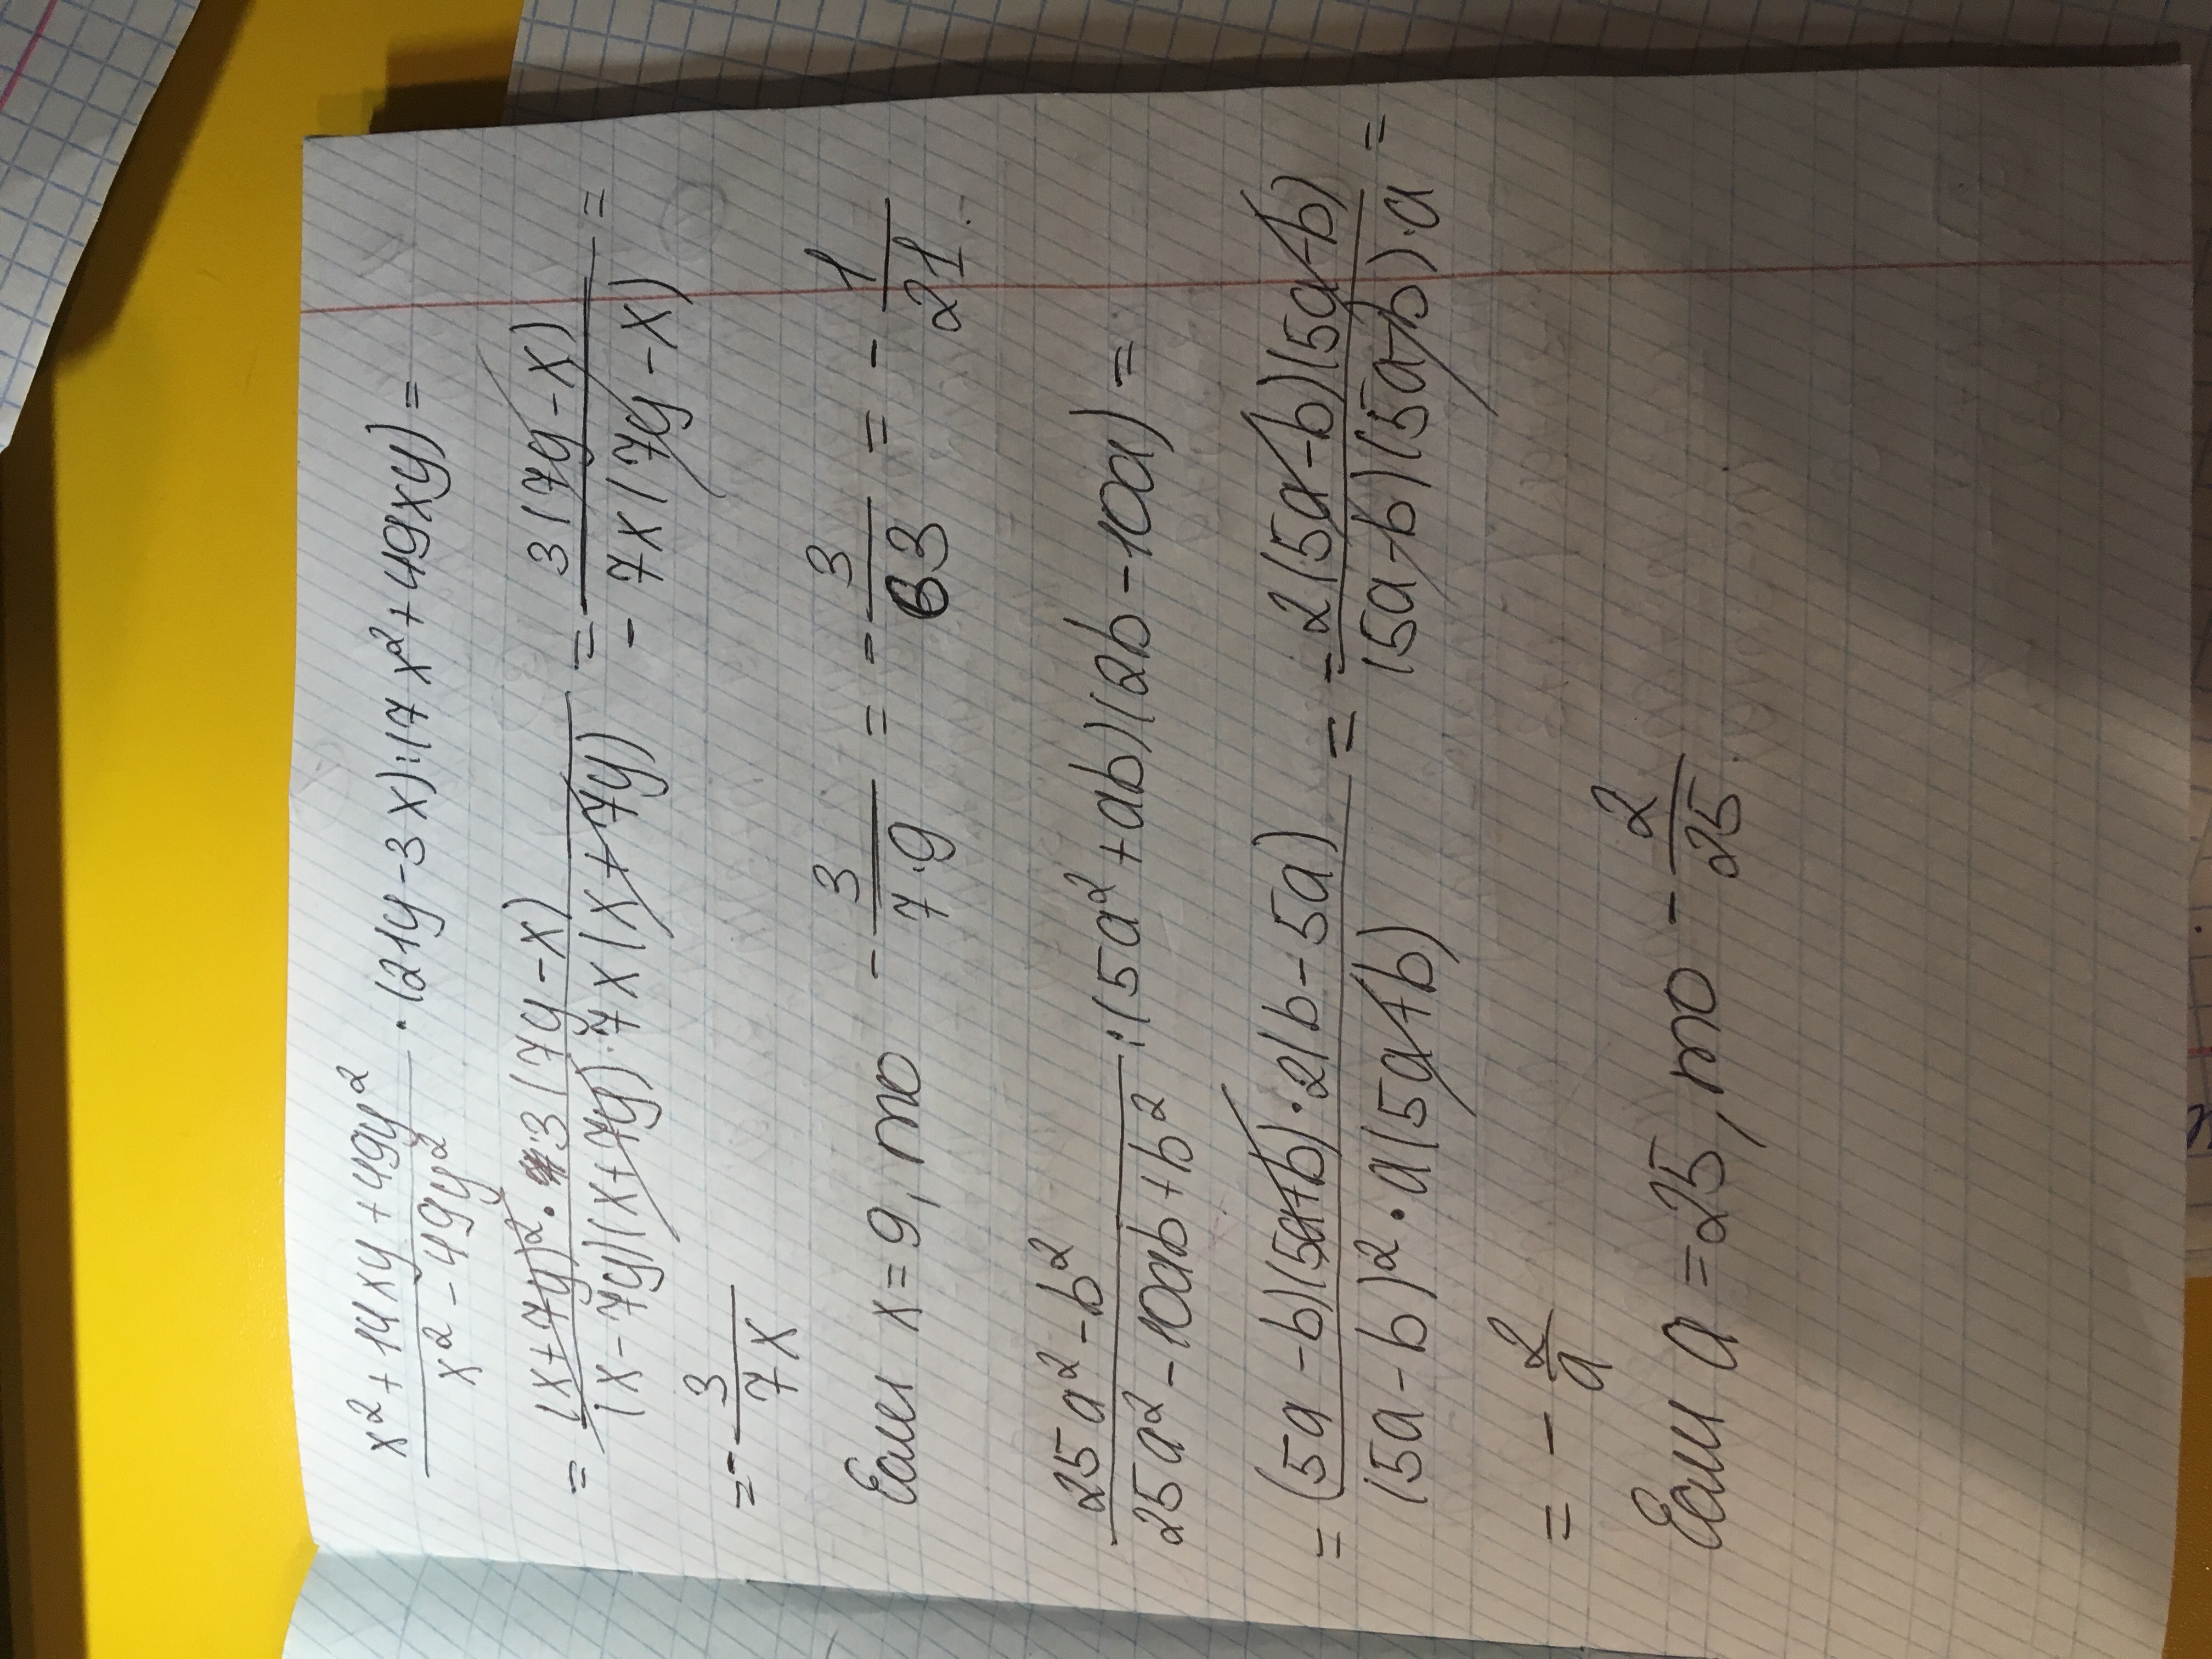 (x² + 14xy + 49y²)/(x² - 49y²) · (21y - 3x) : (7x² + 49xy) =
= ((x + 7y)² · 3(7y - x))/((x - 7y)(x + 7y) · 7x(x + 7y)) = (3(7y - x))/(-7x(7y - x)) =
= - 3/(7x)
Если x = 9, то - 3/(7·9) = - 3/63 = - 1/21.
(25a² - b²)/(25a² - 10ab + b²) : (5a² + ab)(2b - 10a) =
= ((5a - b)(5a + b) · 2(b - 5a))/((5a - b)² · a(5a + b)) = (-2(5a - b)(5a - b))/((5a - b)(5a - b) · a) =
= - 2/a
Если a = 25, то - 2/25.